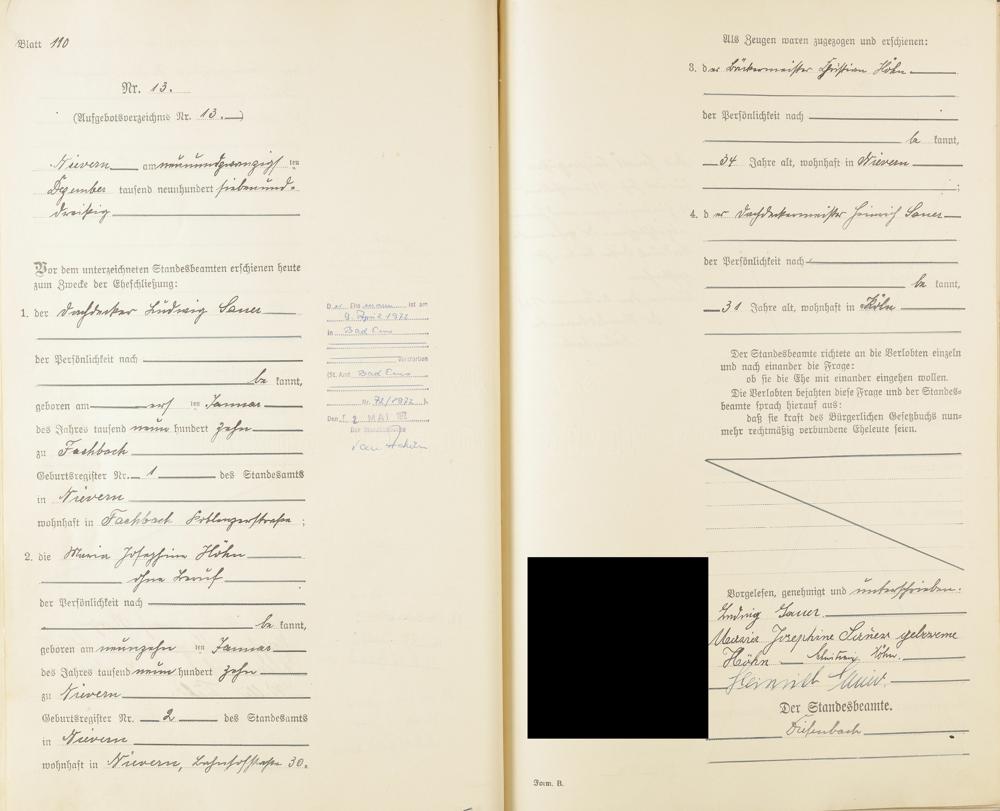 Blatt 110
Nr. 13.
(Aufgebotsverzeichnis Nr. 13.)
Nievern am neunundzwanzigsten
Dezember tausend neunhundert siebenund-
dreißig
Vor dem unterzeichneten Standesbeamten erschienen heute
zum Zwecke der Eheschließung:
1. der Dachdecker Ludwig Sauer
der Persönlichkeit nach
be kannt,
geboren am ersten Januar
des Jahres tausend neun hundert zehn
zu Fachbach
Geburtsregister Nr. 1 des Standesamts
in Nievern
wohnhaft in Fachbach Koblenzerstraße;
2. die Maria Josephine Höhn
ohne Beruf
der Persönlichkeit nach
be kannt,
geboren am neunzehnten Januar
des Jahres tausend neun hundert zehn
zu Nievern
Geburtsregister Nr. 2 des Standesamts
in Nievern
wohnhaft in Nievern, Bahnhofstraße 30.
Der Ehemann ist am
9. April 1972
in Bad Ems
Verstorben
(St. Amt Bad Ems
Nr. 72/1972 ).
Den 2 MAI
Der Standesbeamte
Als Zeugen waren zugezogen und erschienen:
3. der Bäckermeister Christian Höhn
der Persönlichkeit nach
be kannt,
34 Jahre alt, wohnhaft in Nievern
;
4. der Dachdeckermeister Heinrich Sauer
der Persönlichkeit nach
be kannt,
31 Jahre alt, wohnhaft in Köln
Der Standesbeamte richtete an die Verlobten einzeln
und nach einander die Frage:
ob sie die Ehe mit einander eingehen wollen.
Die Verlobten bejahten diese Frage und der Standes-
beamte sprach hierauf aus:
daß sie kraft des Bürgerlichen Gesetzbuchs nun-
mehr rechtmäßig verbundene Eheleute seien.
Vorgelesen, genehmigt und unterschrieben.
Ludwig Sauer
Maria Josephine Sauer geborene
Höhn Christian Höhn.
Heinrich Sauer.
Der Standesbeamte.
Diefenbach
Form. B.